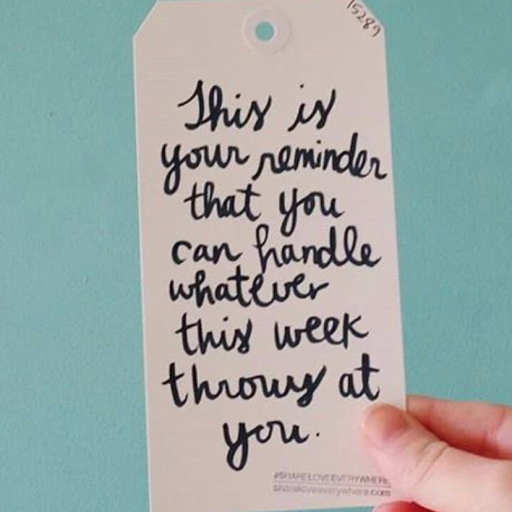 15289
This is
your reminder
that you
can handle
whatever
this week
throws at
you.
#SHARELOVEEVERYWHERE
shareloveeverywhere.com